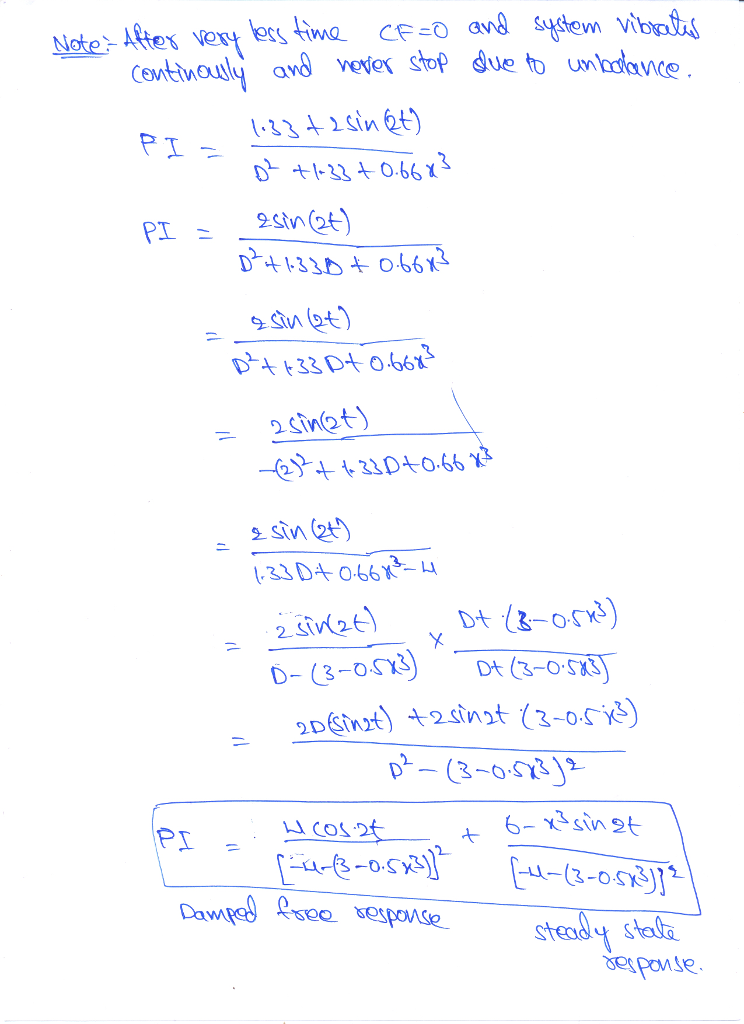 Note:- After very less time CF=0 and system vibrates
continously and never stop due to unbalance.
PI = (1.33 + 2sin(2t)) / (D² + 1.33 + 0.66x³)
PI = 2sin(2t) / (D² + 1.33D + 0.66x³)
= 2sin(2t) / (D² + 1.33D + 0.66x³)
= 2sin(2t) / (-(2)² + 1.33D + 0.66x³)
= 2sin(2t) / (1.33D + 0.66x³ - 4)
= 2sin(2t) / (D - (3 - 0.5x³)) × (D + (3 - 0.5x³)) / (D + (3 - 0.5x³))
= (2D(sin2t) + 2sin2t (3 - 0.5x³)) / (D² - (3 - 0.5x³)²)
PI = 4cos2t / [-4-(3-0.5x³)]² + 6-x³sin2t / [-4-(3-0.5x³)]²
Damped free response
steady state
response.